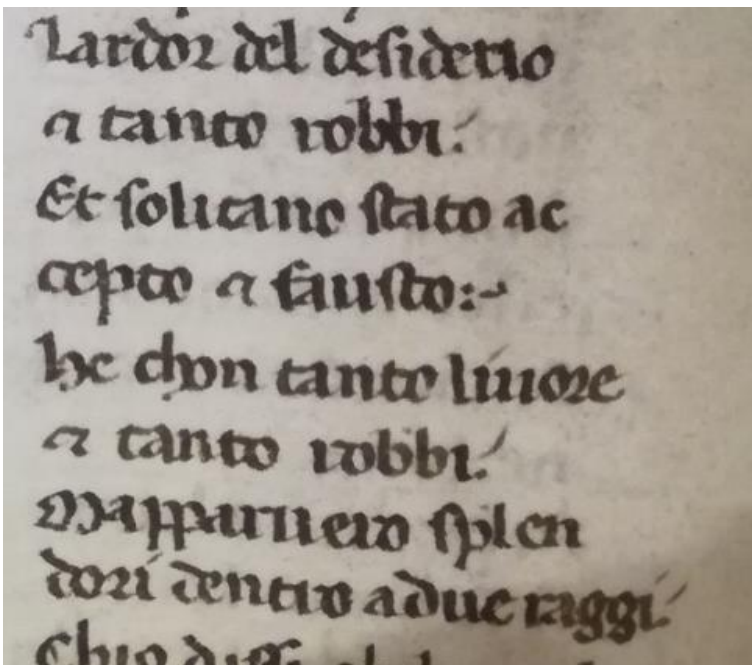 Lardor del desiderio
⁊ tanto robbi:
Et solitano stato ac
cepto ⁊ fausto:~
he chon tanto liuore
⁊ tanto robbi.
Mapparuero splen
dori dentro adue raggi
Chio